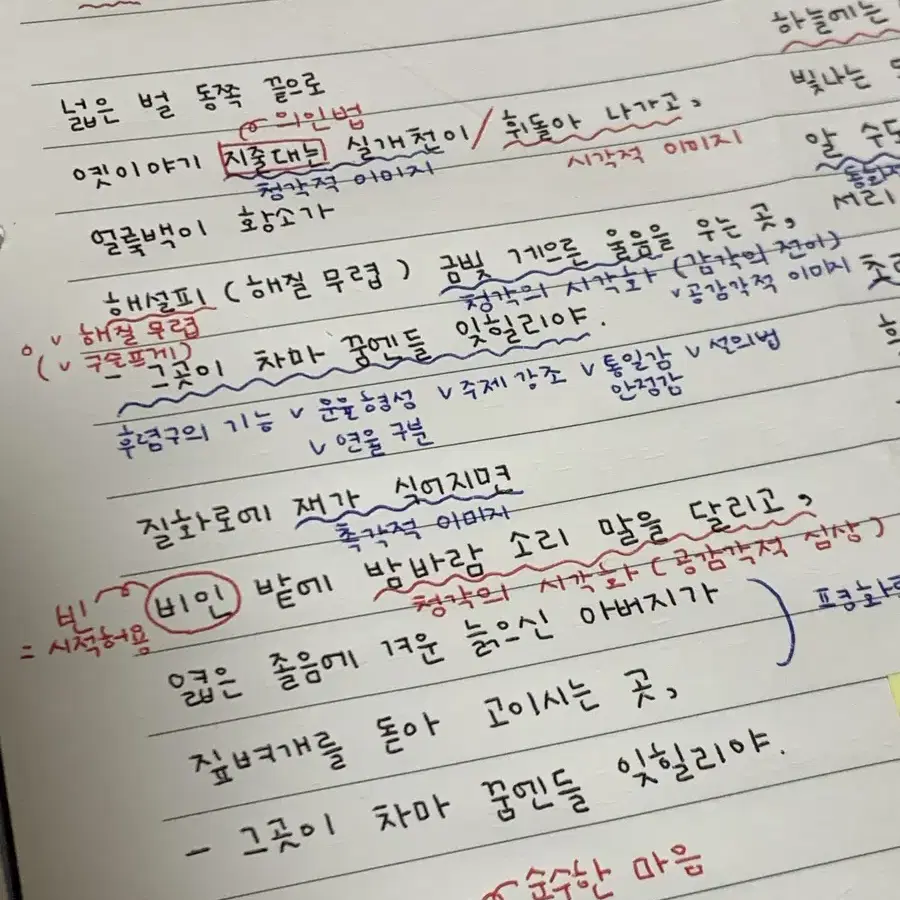 넓은 벌 동쪽 끝으로
의인법
옛이야기 지줄대는 실개천이 / 휘돌아 나가고,
청각적 이미지
시각적 이미지
얼룩백이 황소가
해설피 (해질 무렵) 금빛 게으른 울음을 우는 곳,
청각의 시각화 (감각의 전이)
v 공감각적 이미지
v 해질 무렵
(v 구슬프게)
- 그곳이 차마 꿈엔들 잊힐리야.
후렴구의 기능 v 운율 형성 v 주제 강조 v 통일감 안정감 v 설의법
v 연을 구분
질화로에 재가 식어지면
촉각적 이미지
비인 밭에 밤바람 소리 말을 달리고,
청각의 시각화 (공감각적 심상)
빈
= 시적허용
엷은 졸음에 겨운 늙으신 아버지가
짚벼개를 돋아 고이시는 곳,
- 그곳이 차마 꿈엔들 잊힐리야.
순수한 마음
하늘에는
빛나는
알 수도
서리